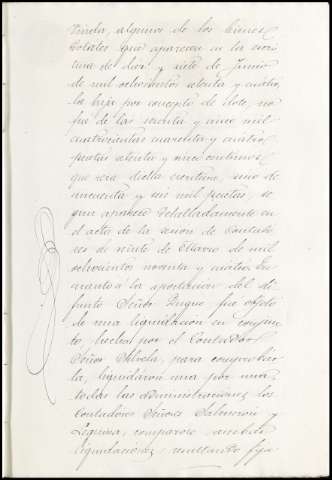 Varela, algunos de los bienes
dotales que aparecen en la escri
tura de diez y siete de Junio
de mil ochocientos ochenta y cuatro,
la baja por concepto de dote, no
fue de las sesenta y once mil
cuatrocientas cuarenta y cuatro
pesetas ochenta y once centimos
que reza dicha escritura, sino de
cincuenta y seis mil pesetas, se
gun aparece detalladamente en
el acta de la sesion de Contado
res de veinte de Marzo de mil
ochocientos noventa y cuatro. En
cuanto a la aportacion del di
funto Señor Pongue fue objeto
de una liquidacion en conjun
to, hecha por el Contador
Señor Silvela, para comprobar
la, liquidaron una por una
todas las administraciones los
Contadores Señores Salmeron y
Leguina, comparose ambas
liquidaciones, resultando fija